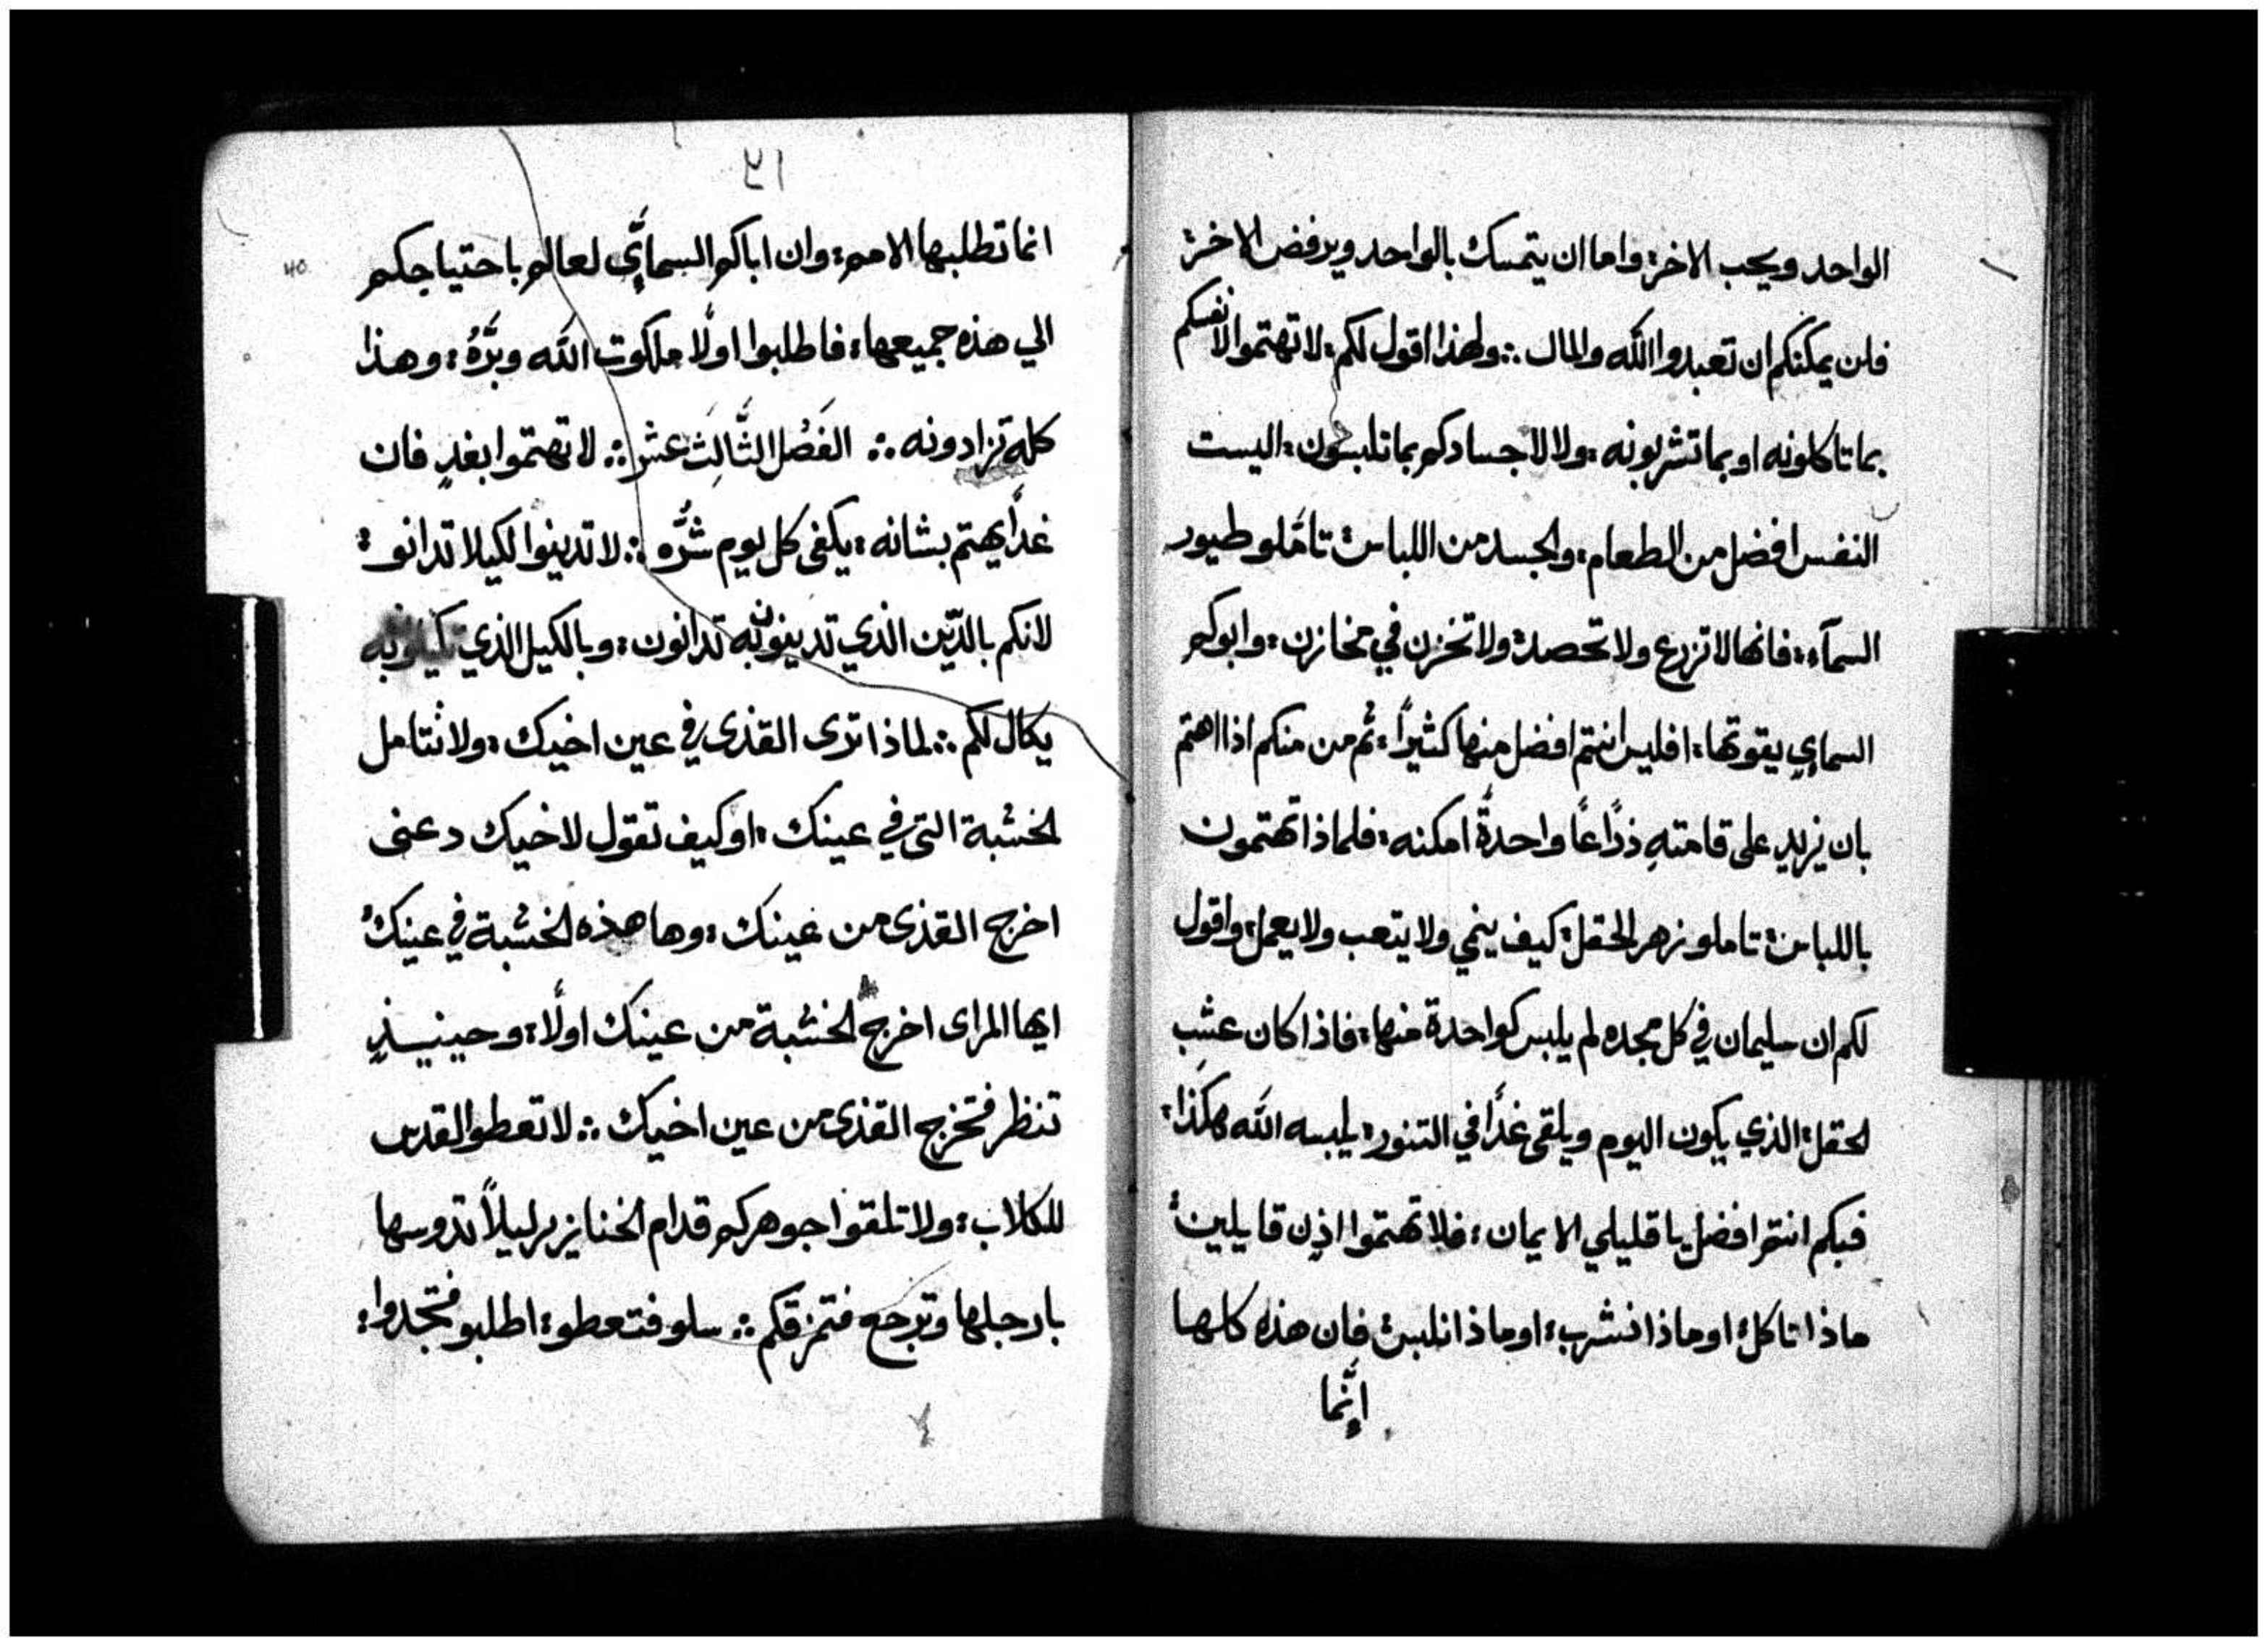 الواحد ويحب الاخر: واما ان يتمسك بالواحد ويرفض الاخر:
فلن يمكنكم ان تعبدوا الله والمال ∴ ولهذا اقول لكم: لا تهتموا لانفسكم
بما تاكلونه او بما تشربونه: ولا لاجسادكم بما تلبسون: اليست
النفس افضل من الطعام: والجسد من اللباس: تامَّلو طيور
السمآء: فانها لا تزرع ولا تحصد: ولا تخزن في مخازن: وابوكم
السماءي يقوتها: افليس انتم افضل منها كثيرًا: ثم من منكم اذا اهتم
بان يزيد على قامتهِ ذراعًا واحدةً امكنه: فلماذا تهتمون
باللباس: تاملو زهر الحقل: كيف ينمي ولا يتعب ولا يعمل: واقول
لكم ان سليمان في كل مجده لم يلبس كواحدة منها: فاذا كان عشب
لحقل: الذي يكون اليوم ويلقى غدًا في التنور: يلبسه الله هكذا:
فبكم انتم افضل يا قليلي الايمان: فلا تهتموا اذن قايلين:
ماذا تاكل: او ماذا نشرب: او ماذا نلبس: فان هذه كلها
انَّما
٢١
40
انما تطلبها الامم: وان اباكم السماءيَّ لعالم باحتياجكم
الي هذه جميعها: فاطلبوا اولًا ملكوت الله وبرَّهُ: وهذا
كله تزادونه ∴ الفَصْل الثَّالِث عشر ∴ لا تهتموا بغدٍ فان
غدًا يهتم بشانه: يكفى كل يوم شرُّه ∴ لا تدينوا لكيلا تدانو:
لانكم بالدّين الذي تدينونبه تدانون: وبالكيل الذي تكيلونبه
يكال لكم ∴ لماذا ترى القذى في عين اخيك: ولا تتامل
لخشبة التى في عينك: او كيف تقول لاخيك دعنى
اخرج القذى من عينك: وها هذه لخشبة في عينك:
ايها المراى اخرج لخشبة من عينك اولًا: وحينيـــذٍ
تنظر فتخرج القذى من عين اخيك ∴ لا تعطوا القدس
للكلاب: ولا تلقوا جوهركم قدام الخنازير ليلاً تدوسها
بارجلها وترجع فتمزقكم ∴ سلو فتعطو: اطلبو فتجدوا: